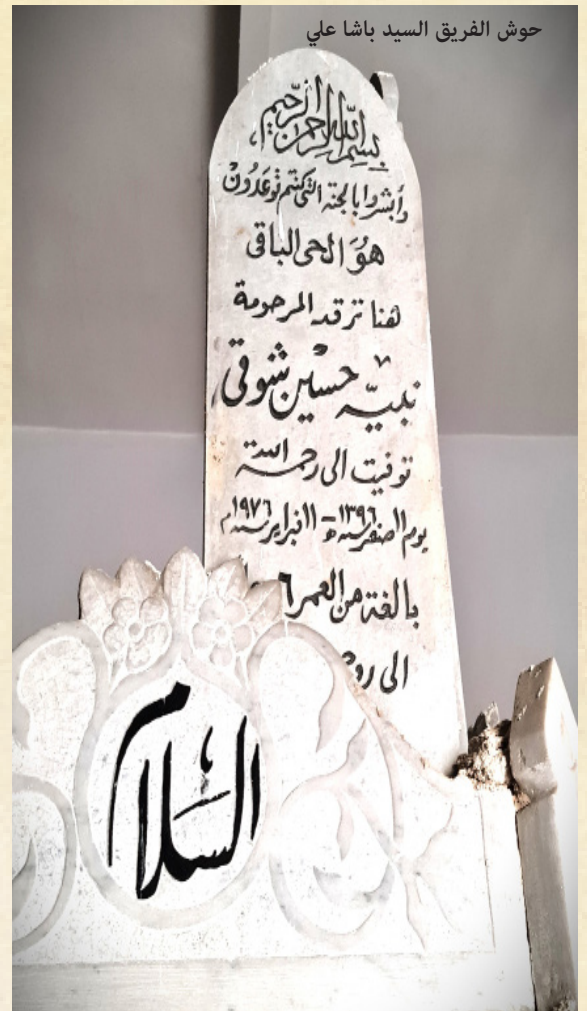 حوش الفريق السيد باشا علي
بسم الله الرحمن الرحيم
وأبشروا بالجنة التي كنتم توعدون
هو الحي الباقي
هنا ترقد المرحومة
نبيه حسين شوقي
توفيت الى رحمة الله
يوم ١١ صفر سنة ١٣٩٦ هـ - ١١ فبراير سنة ١٩٧٦ م
بالغة من العمر
الى
السلام